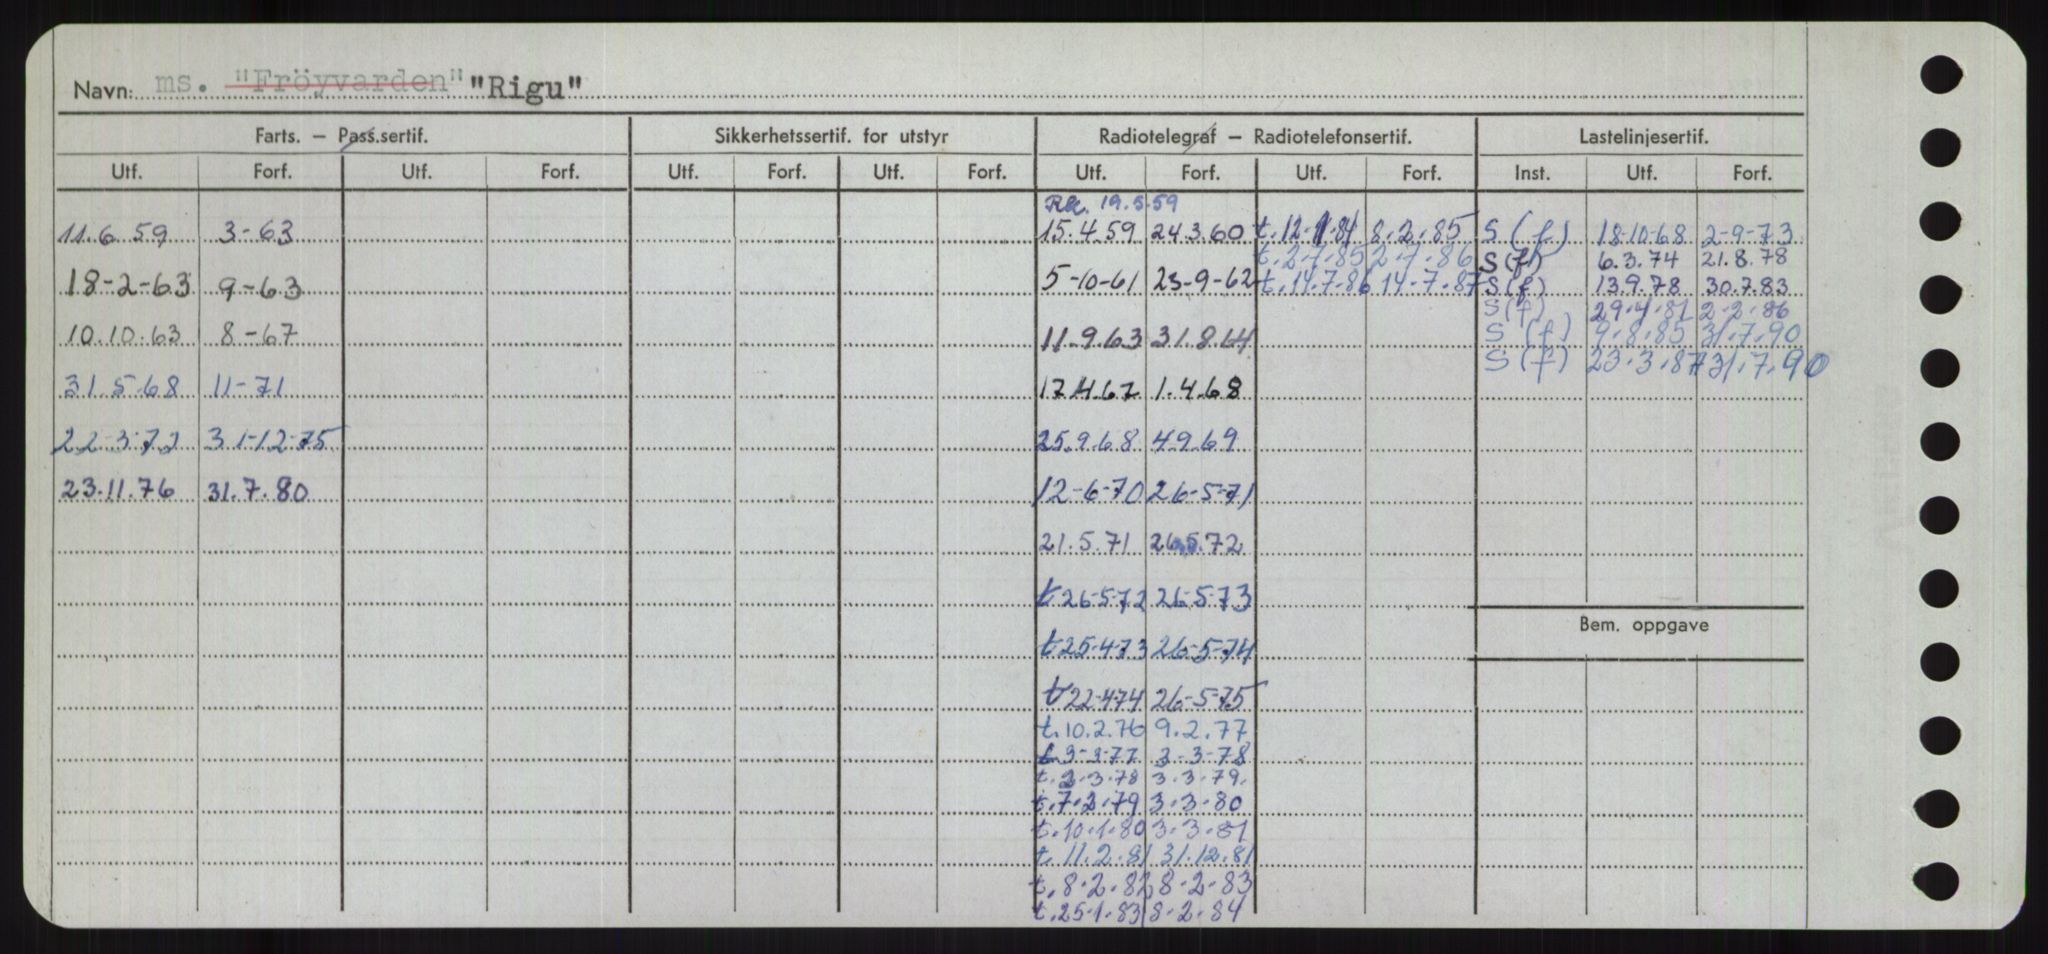 Navn: ms. "Fröyvarden" "Rigu"
Farts. — Pass.sertif. Sikkerhetssertif. for utstyr Radiotelegraf — Radiotelefonsertif. Lastelinjesertif.
Utf. Forf. Utf. Forf. Utf. Forf. Utf. Forf. Utf. Forf. Utf. Forf. Inst. Utf. Forf.
19.5.59
11.6.59 3-63 15.4.59 24.3.60 t.12.1.84 8.2.85 S (f) 18-10-68 2-9-73
t.2.7.85 2.7.86 S(f) 6.3.74 21.8.78
18-2-63 9-63 5-10-61 23-9-62 t.14.7.86 14.7.87 S(f) 13.9.78 30.7.83
S(f) 29.4.81 2.2.86
10.10.63 8-67 11.9.63 31.8.64 S (f) 9.8.85 31.7.90
S(f) 23.3.87 31.7.90
31.5.68 11-71 17.4.67 1.4.68
22-3-72 31-12-75 25.9.68 4.9.69
23.11.76 31.7.80 12-6-70 26-5-71
21.5.71 26.5.72
t 26-5-72 26-5-73
t 25-4-73 26-5-74
Bem. oppgave
t 22-4-74 26-5-75
t.10.2.76 9.2.77
t 3-3-77 3-3-78
t. 2.3.78 3.3.79.
t.7.2.79 3.3.80
t.10.1.80 3.3.81
t. 11.2.81 31.12.81
t. 8.2.82 8.2.83
t.25.1.83 8.2.84